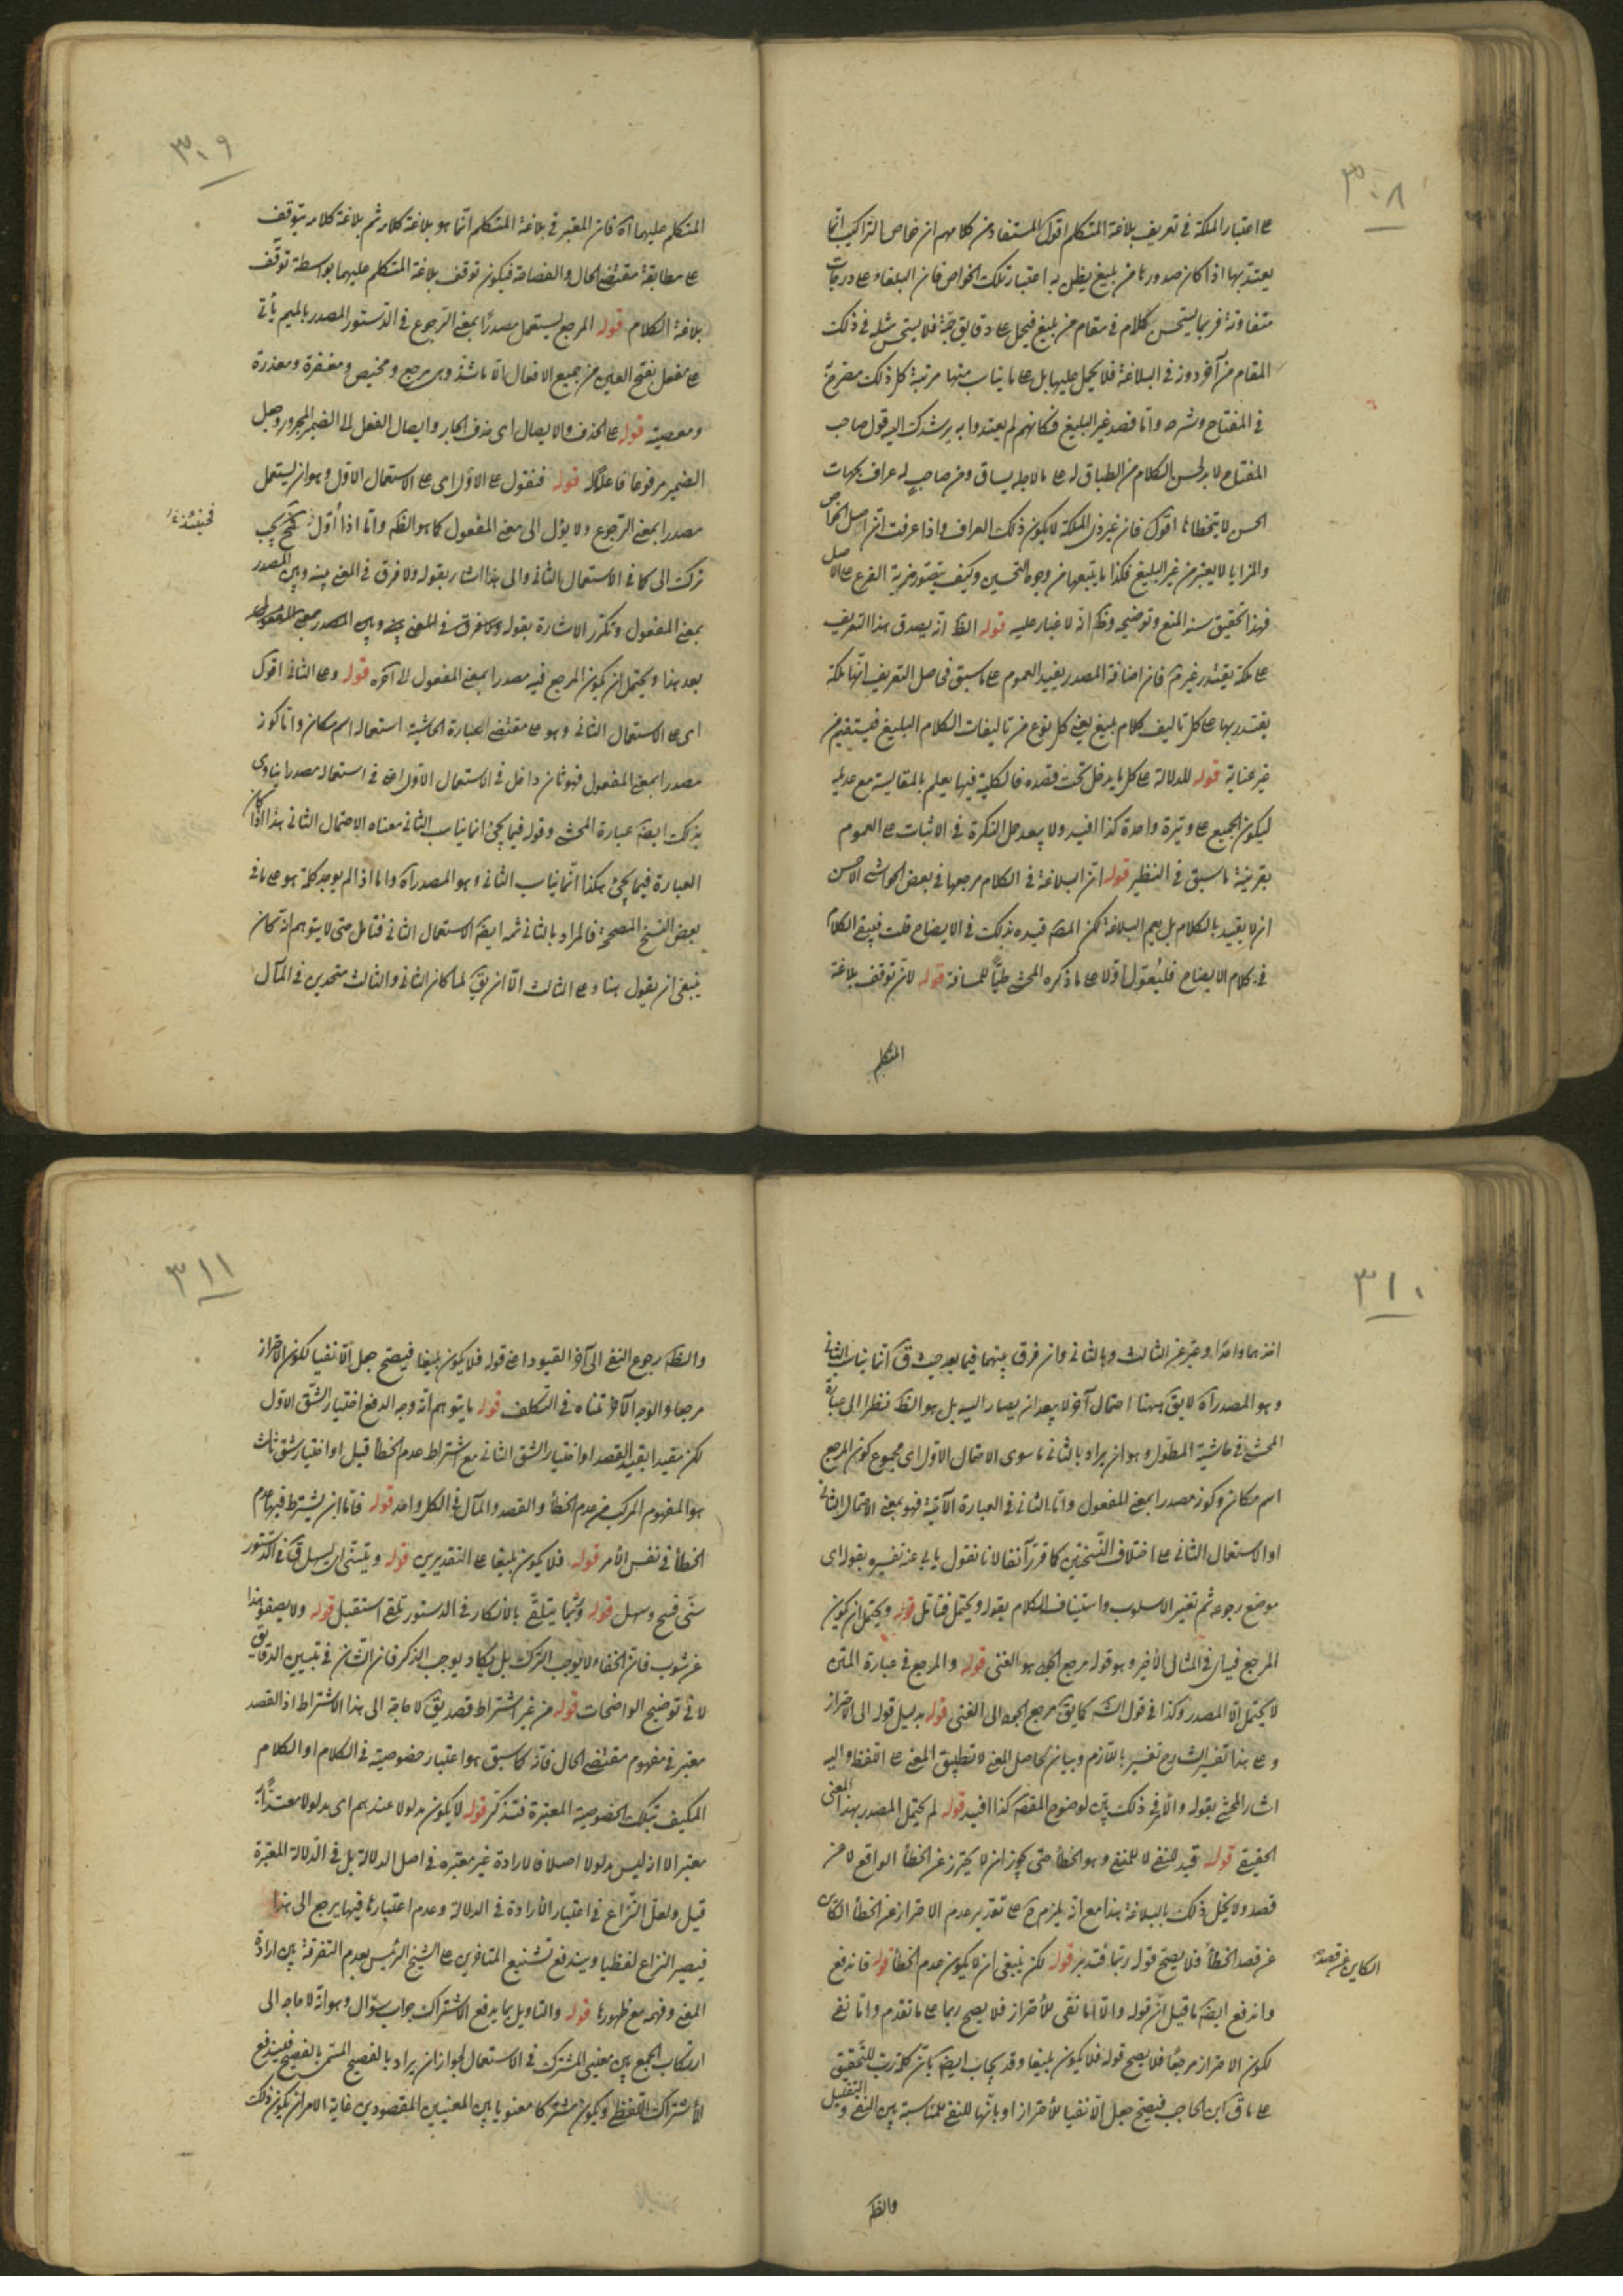 ٣٠٨
ع اعتبار الملكة في تعريف بلاغة المتكلم اقول المستفاد من كلامهم ان خواص التراكيب انما
يعتد بها اذا كان صدورها من بليغ يظن به اعتبار تلك الخواص فان البلغاء ع درجات
متفاوتة فربما يستحسن كلام في مقام من بليغ فيحمل ع دقايق جمة فلا يستحسن مثله في ذلك
المقام من آخر دونه في البلاغة فلا يحمل عليها بل ع ما يناسب منها مرتبة كل ذلك مصرح به
في المفتاح وشرحه واما قصد غير البليغ فكانهم لم يعتدوا به يرشدك اليه قول صاحب
المفتاح لا بد لحسن الكلام من انطباق له ع ما لاجله يساق ومن صاحب له عراف بجهات
الحسن لا يتخطاها اقول فان غير ذي الملكة لا يكون ذلك العراف واذا عرفت ان اصل الخواص
والمزايا لا يعتبر من غير البليغ فكذا ما يتبعها من وجوه التحسين وكيف يتصور مزية الفرع ع الاصل
فهذا تحقيق سند المنع وتوضيحه وظ انه لا غبار عليه قوله الظ انه يصدق هذا التعريف
ع ملكة يقتدر غير تم فان اضافة المصدر يفيد العموم ع ما سبق فحاصل التعريف انها ملكة
يقتدر بها ع كل تاليف كلام بليغ يعني كل نوع من تاليفات الكلام البليغ فيستقيم من
غير عناية قوله للدلالة ع كل ما يدخل تحت قصده فالكلية فيها يعلم بالمقايسة مع عديله
ليكون الجميع ع وتيرة واحدة كذا افيد ولا يبعد حمل النكرة في الاثبات ع العموم
بقرينة ما سبق في النظير قوله ان البلاغة في الكلام مرجعها في بعض الحواشي الاحسن
ان لا يقيد بالكلام بل يعم البلاغة لكن المصه قيده بذلك في الايضاح قلت فيبقى الكلام
في كلام الايضاح فليعول اولا ع ما ذكره المحشى طيا للمسافة قوله لان توقف بلاغة
المتكلم
٣٠٩
المتكلم عليهما آه فان المعتبر في بلاغة المتكلم انما هو بلاغة كلامه ثم بلاغة كلامه يتوقف
ع مطابقة مقتضى الحال والفصاحة فيكون توقف بلاغة المتكلم عليهما بواسطة توقف
بلاغة الكلام قوله المرجع يستعمل مصدرا بمعنى الرجوع في الدستور المصدر بالميم يأتي
ع مفعل بفتح العين من جميع الافعال الا ما شذ وهى مرجع ومحيض ومغفرة ومعذرة
ومعصية قوله ع الحذف والايصال اى حذف الجار وايصال الفعل الى الضمير المجرور وجعل
الضمير مرفوعا فاعلا له قوله فنقول ع الاول اى ع الاستعمال الاول وهو ان يستعمل
مصدرا بمعنى الرجوع ولا يؤل الى معنى المفعول كما هو الظه واما اذا أول به فح يجب
فحينئذ
ترك الى كما في الاستعمال الثاني والى هذا اشار بقوله ولا فرق في المعنى بينه وبين المصدر
بمعنى المفعول وتكرر الاشارة بقوله ولا فرق في المعنى بينه وبين المصدر بمعنى المفعول
بعد هذا ويحتمل ان يكون المرجع فيه مصدرا بمعنى المفعول الى آخره قوله وع الثاني اقول
اى ع الاستعمال الثاني وهو ع مقتضى العبارة الحاشية استعماله اسم مكان واما كونه
مصدرا بمعنى المفعول فهو ثان داخل في الاستعمال الاول اعنى في استعماله مصدرا ينادى
بذلك ايضه عبارة المحشى وقوله فيما يجئ انما يناسب الثاني معناه الاحتمال الثاني هذا اذا كان
العبارة فيما يجئ هكذا انما يناسب الثاني وهو المصدر آه واما اذا لم يوجد كلمة هو ع ما في
بعض النسخ المصححة فالمراد بالثاني ثمه ايضه الاستعمال الثاني فتامل حتى لا يتوهم انه كان
ينبغي ان يقول هنا وع الثالث الا ان يق لما كان الثاني والثالث متحدين في المآل
٣١٠
اخذهما واحدا وعبر عن الثالث بالثاني وان فرق بينهما فيما بعد حيث ق انما يناسب الثاني
وهو المصدر آه لا يق ههنا احتمال آخر لا يبعد ان يصار اليه بل هو الظ نظرا الى عبارة
المحشى في حاشية المطول وهو ان يراد بالثاني ما سوى الاحتمال الاول اى مجموع كون المرجع
اسم مكان وكونه مصدرا بمعنى المفعول واما الثاني في العبارة الآتية فهو بمعنى الاحتمال الثاني
او الاستعمال الثاني ع اختلاف النسختين كما قرر آنفا لانا نقول يابى عنه تفسيره بقوله اى
موضع رجوعه ثم تغيير الاسلوب واستيناف الكلام بقوله ويحتمل فتامل قوله ويحتمل ان يكون
المرجع فيه اى في المثال الأخير وهو قوله مرجع الجود هو الغنى قوله والمرجع في عبارة المتن
لا يحتمل الا المصدر وكذا في قول الشه كما يق مرجع الجود الى الغنى قوله بدليل قوله الى الاحتراز
وع هذا تفسير الشارح تفسير باللازم وبيان لحاصل المعنى لا تطبيق المعنى ع اللفظ واليه
اشار المحشى بقوله والأمر في ذلك بين لوضوح المقصه كذا افيد قوله لم يحتمل المصدر بهذا المعنى
الحقيقي قوله قيد للنفى لا للمنفى وهو الخطأ حتى يجوز ان لا يحترز عن الخطأ الواقع لا عن
قصد ولا يخل ذلك بالبلاغة هذا مع انه يلزم ح ع تقدير عدم الاحتراز عن الخطأ الكائن
عن قصد الخطأ فلا يصح قوله ربما فتدبر قوله لكن ينبغي ان لا يكون عدم الخطأ قوله فاندفع
الكاين عن قصد
واندفع ايضه ما قيل ان قوله والا اما نفى للأحتراز فلا يصح ربما ع ما تقدم واما نفى
لكون الاحتراز مرجعا فلا يصح قوله فلا يكون بليغا وقد يجاب ايضه بان كلمة رب للتحقيق
ع ما ق ابن الحاجب فيصح جعل الا نفيا للأحتراز او بانها للنفى للمناسبة بين النفى والتقليل
والظه
٣١١
والظه رجوع النفى الى آخر القيود اعنى قوله فلا يكون بليغا فيصح جعل الا نفيا لكون الاحتراز
مرجعا والوجه الآخر تمناه في التكلف قوله ما يتوهم انه وجه الدفع اختيار الشق الاول
لكن مقيدا بقيد القصد او اختيار الشق الثاني مع اشتراط عدم الخطأ قبل او اختيار شق ثالث
هو المفهوم المركب من عدم الخطأ والقصد والمآل في الكل واحد قوله فاما ان يشترط فيها عدم
الخطأ في نفس الأمر قوله فلا يكون بليغا ع التقديرين قوله ويتسنى اى يسهل ق في الدستور
سنى فتح وسهل قوله وربما يتلقى بالأنكار في الدستور تلقى استقبل قوله ولا يصفو هذا
عن شوب فان الخفاء لا يوجب الترك بل يكاد يوجب الذكر فان الشان في تبيين الدقايق
لا في توضيح الواضحات قوله من غير اشتراط قصد يق لا حاجة الى هذا الاشتراط اذ القصد
معتبر في مفهوم مقتضى الحال فانه كما سبق هو اعتبار خصوصية في الكلام او الكلام
المكيف بتلك الخصوصية المعتبرة فتذكر قوله لا يكون مدلولا عندهم اى مدلولا معتدا به
معتبرا لا انه ليس مدلولا اصلا فالارادة غير معتبرة في اصل الدلالة بل في الدلالة المعتبرة
قيل ولعل النزاع في اعتبار الأرادة في الدلالة وعدم اعتبارها فيها يرجع الى هذا
فيصير النزاع لفظيا ويندفع تشنيع المتاخرين ع الشيخ الرئيس بعدم التفرقة بين ارادة
المعنى وفهمه مع ظهورها قوله والتاويل بما يدفع الاشتراك جواب سؤال وهو انه لا حاجة الى
ارتكاب الجمع بين معنيى المشترك في الاستعمال لجواز ان يراد بالفصيح المسمى بالفصيح فيندفع
الأشتراك اللفظى ويكون مشتركا معنويا بين المعنيين المقصودين غاية الامر ان يكون ذلك